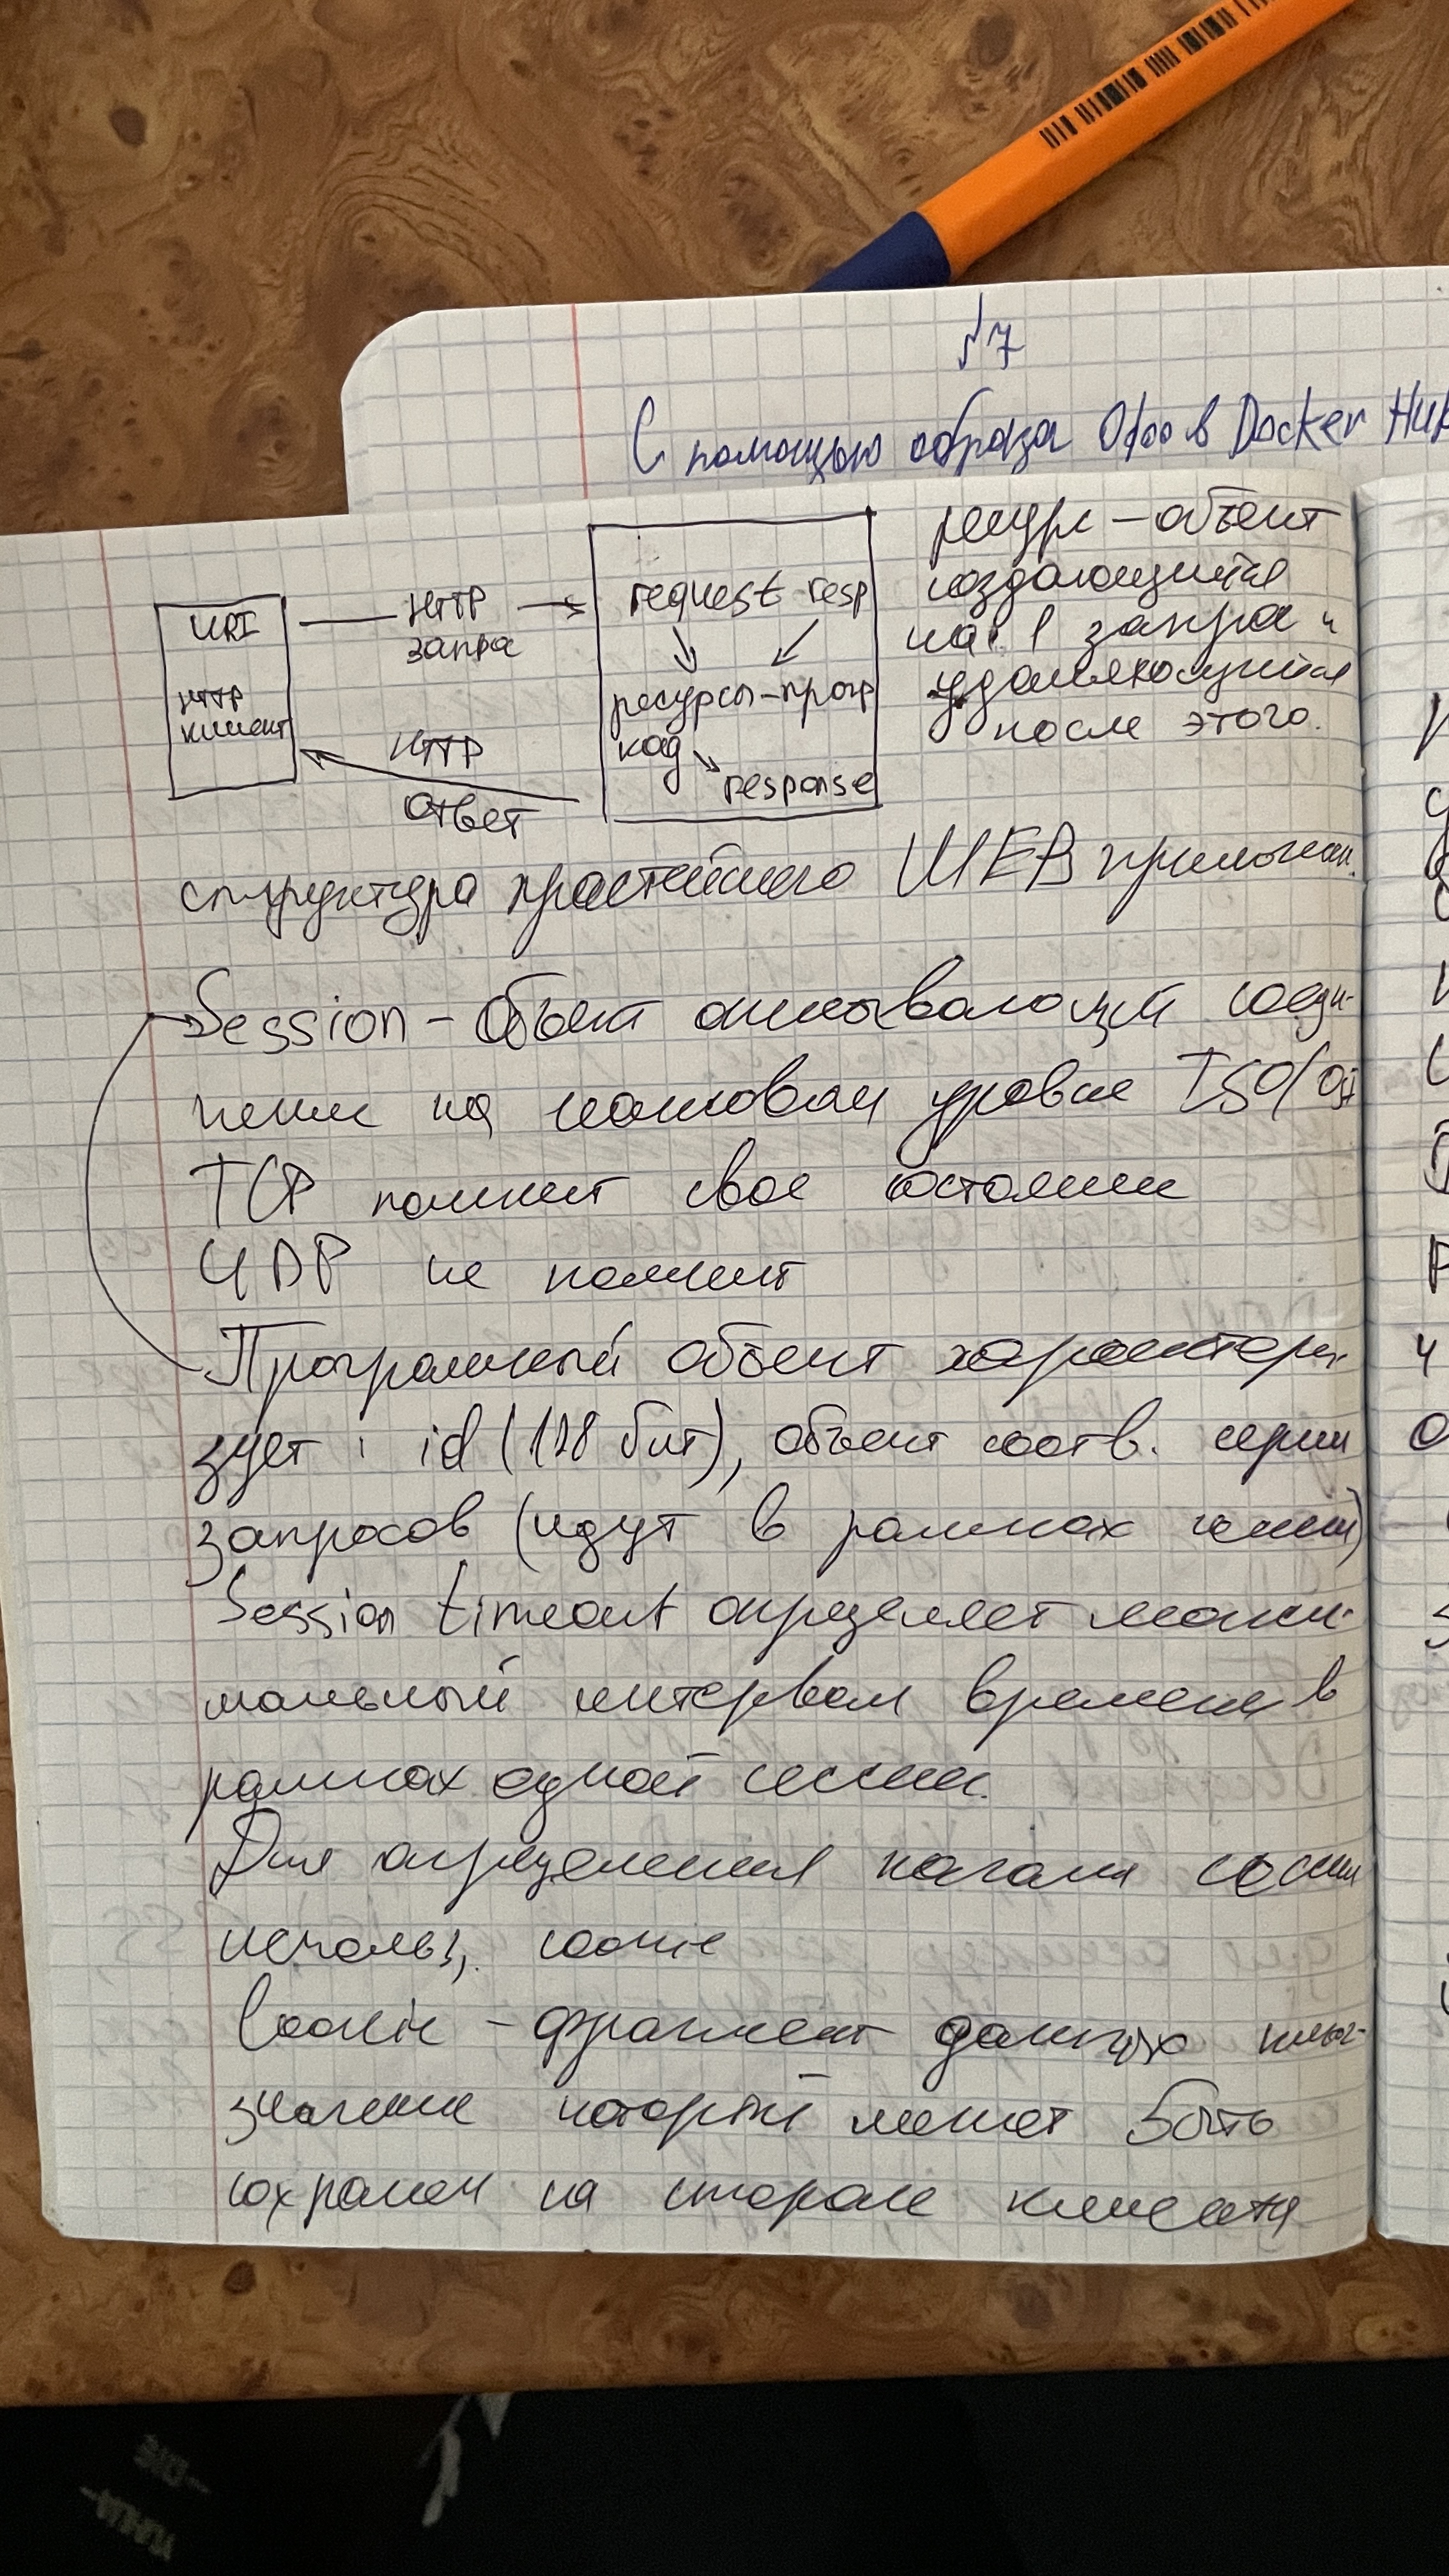 №7
С помощью образа Odoo в Docker Hub
URI
HTTP
клиент
HTTP
запра
HTTP
ответ
request resp
ресурсы-прогр
код
response
ресурс - объект
создающийся
на 1 запра и
удаляющийся
после этого.
структура простейшего WEB приложен.
Session - объект описывающий соеди-
нение на сеансовом уровне ISO/OSI
TCP помнит свое состояние
UDP не помнит
Програмный объект характери-
зует: id (128 бит), объект соотв. серии
запросов (идут в рамках сессии)
Session timeout определяет макси-
мальный интервал времени в
рамках одной сессии.
Для определения начала сессии
использ. cookie
Cookie - фрагмент данных ключ-
значение который может быть
сохранен на стороне клиента